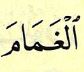 ٱلْغَمَامَ